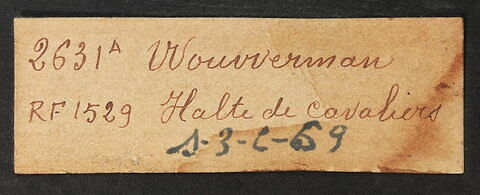 2631A Wouwerman
RF 1529 Halte de cavaliers
S-3-C-69